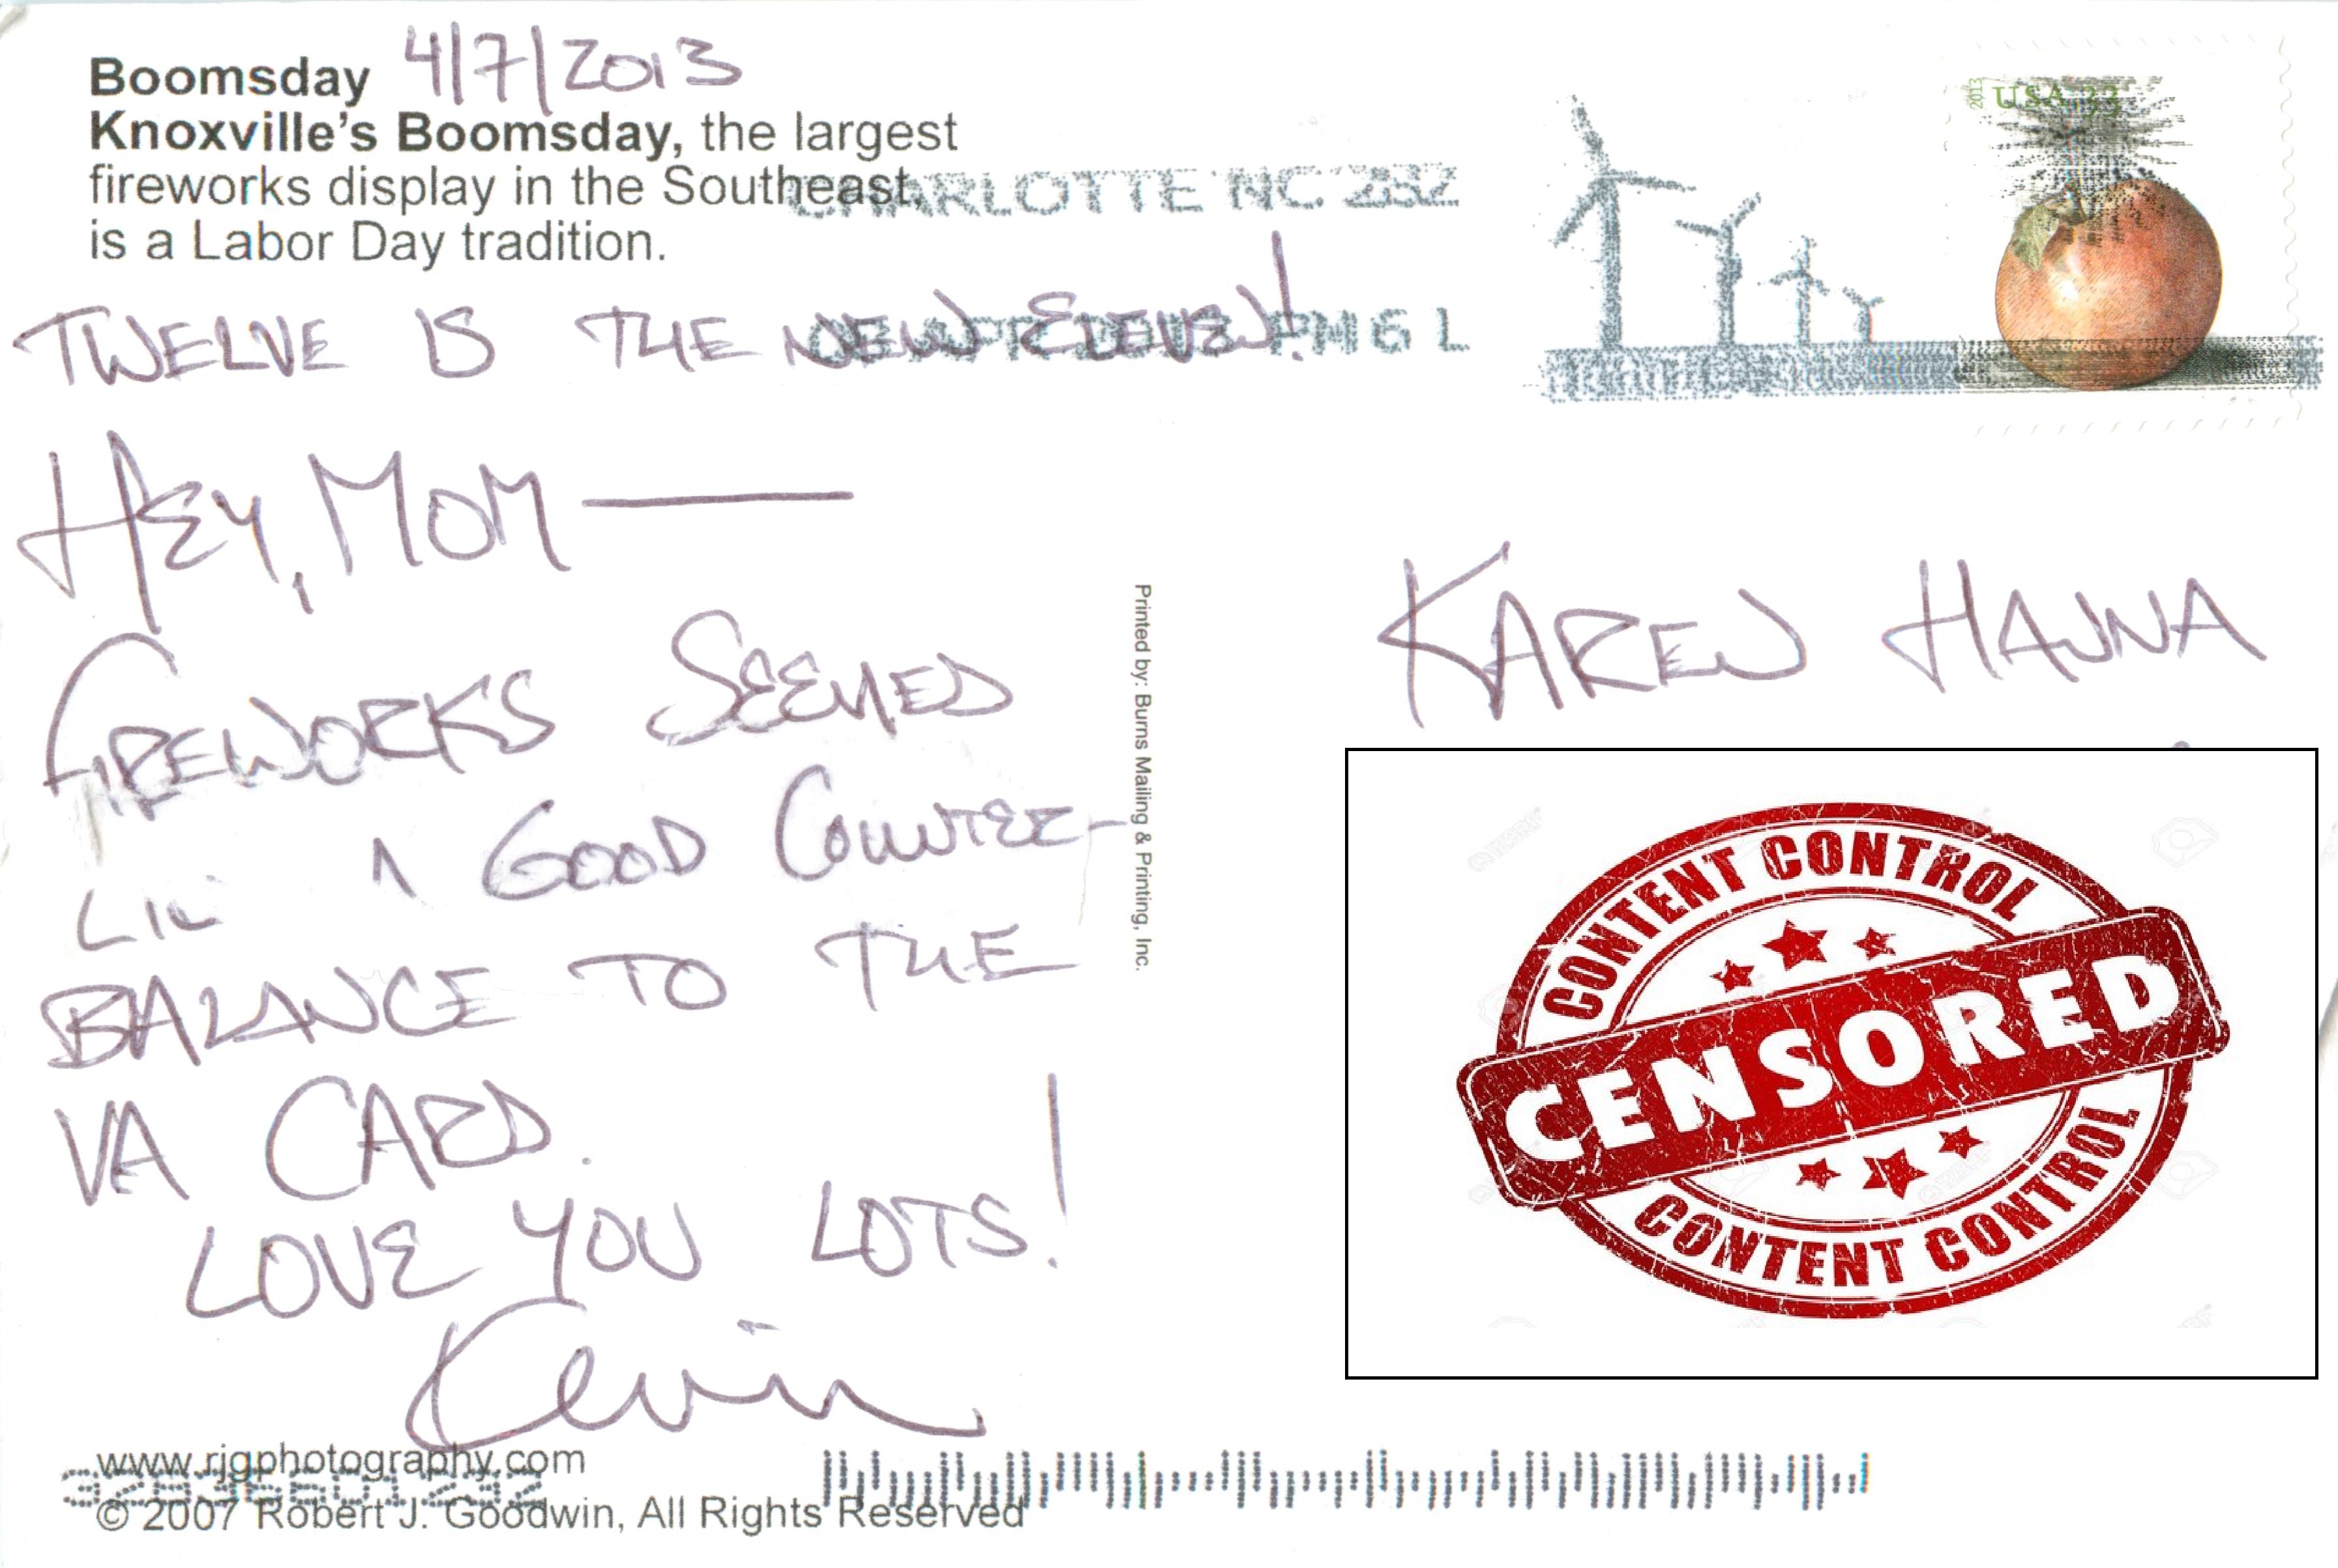 Boomsday 4/7/2013
Knoxville's Boomsday, the largest
fireworks display in the Southeast,
is a Labor Day tradition.
CHARLOTTE NC 282
PM 6 L
2013 USA 33
TWELVE IS THE NEW ELEVEN!
HEY, MOM —
FIREWORKS SEEMED
LIK A GOOD COUNTER-
BALANCE TO THE
VA CARD.
LOVE YOU LOTS!
Kevin
Printed by: Burns Mailing & Printing, Inc.
KAREN HANNA
CONTENT CONTROL
CENSORED
CONTENT CONTROL
www.rjgphotography.com
© 2007 Robert J. Goodwin, All Rights Reserved